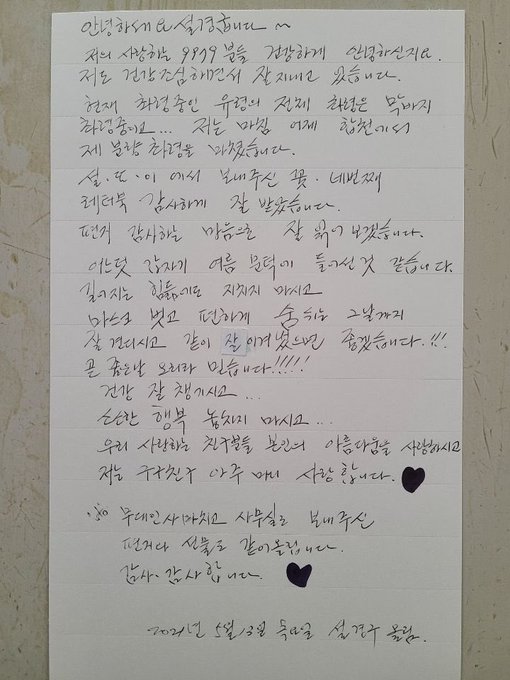 안녕하세요 설경구입니다 ~
저의 사랑하는 9979분들 건강하게 안녕하신지요.
저도 건강조심해면서 잘 지내고 있습니다.
현재 촬영중인 유령의 전체 촬영은 막바지
촬영중이고... 저는 마침 어제 합천에서
제 분량 촬영을 마쳤습니다.
설.또.이 에서 보내주신 꽃. 네번째
레터북 감사하게 잘 받았습니다.
편지 감사하는 마음으로 잘 읽어 보겠습니다.
어느덧 갑자기 여름 문턱에 들어선 것 같습니다.
길어지는 힘듦에도 지치지 마시고
마스크 벗고 편하게 숨쉬는 그날까지
잘 견디시고 같이 잘 이겨냈으면 좋겠습니다.!!!
곧 좋은날 오리라 믿습니다!!!!!
건강 잘 챙기시고...
소소한 행복 놓치지 마시고...
우리 사랑하는 친구분들 본인의 아름다움을 사랑하시고
저는 구구친구 아주 많이 사랑합니다.
무대인사 마치고 사무실로 보내주신
편지와 선물도 같이 올립니다.
감사.감사합니다.
2021년 5월 13일 목요일 설경구 올림.